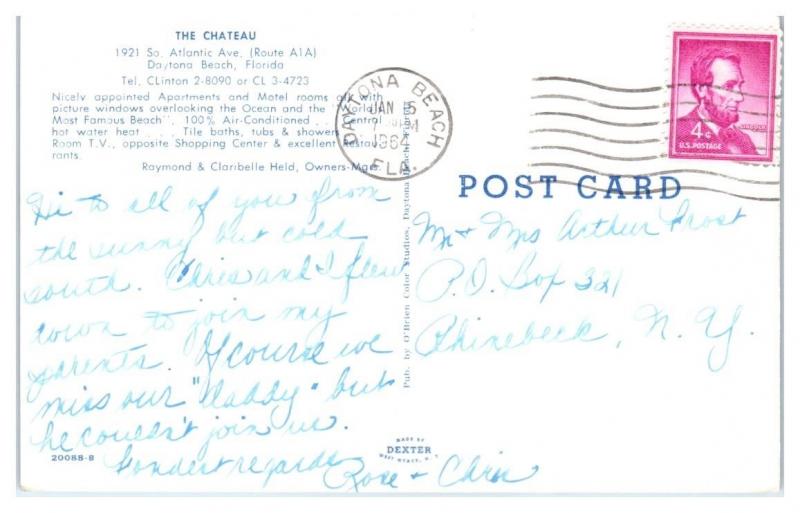 THE CHATEAU
1921 So. Atlantic Ave. (Route A1A)
Daytona Beach, Florida
Tel. CLinton 2-8090 or CL 3-4723
Nicely appointed Apartments and Motel rooms all with
picture windows overlooking the Ocean and the "World's
Most Famous Beach". 100% Air-Conditioned . . . Central
hot water heat . . . Tile baths, tubs & showers
Room T.V., opposite Shopping Center & excellent Restau-
rants.
Raymond & Claribelle Held, Owners-Mgrs.
DAYTONA BEACH
JAN 6
1964
FLA.
LINCOLN
4¢
U.S. POSTAGE
POST CARD
Hi to all of you from
the sunny but cold
south. Chris and I flew
down to join my
parents. Of course we
miss our "daddy" but
he couldn't join us.
Fondest regards
Rose + Chris
Pub. by O'Brien Color Studios, Daytona Beach, Florida
Mr + Mrs Arthur Frost
P.O. Box 321
Rhinebeck, N.Y.
20088-B
MADE BY
DEXTER
WEST NYACK, N.Y.